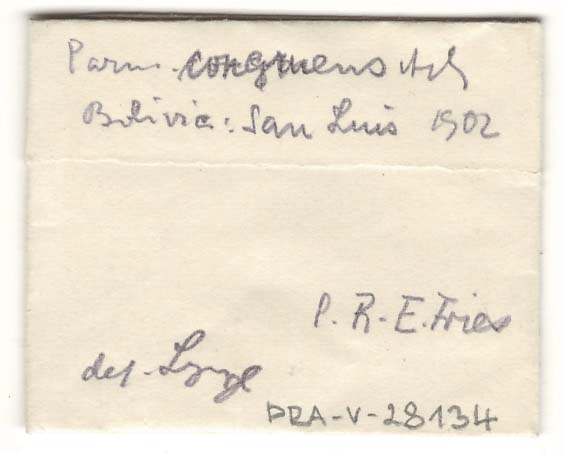 Parm. congruens Ach
Bolivia: San Luis 1902
l. R. E. Fries
det. Lynge
PRA-V-28134